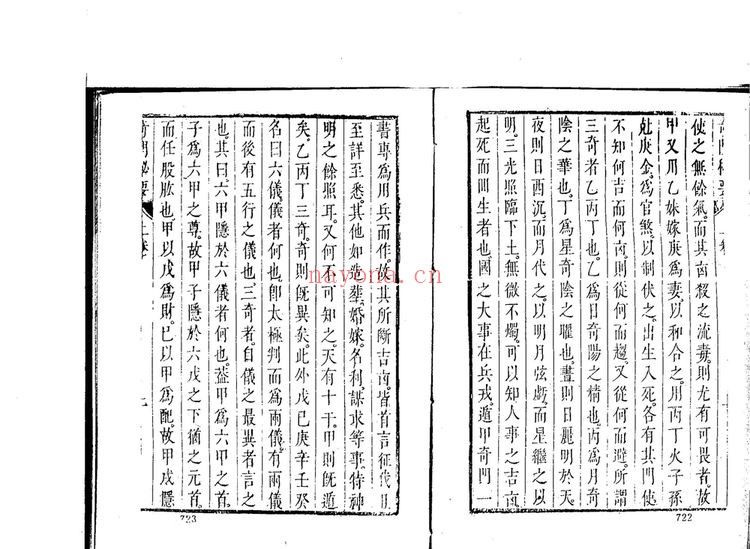 使之無餘氣。而其凶殺之流毒。則尤有可畏者。故
甲又用乙妹嫁庚為妻。以和合之。用丙丁火子孫
尅庚金。為官煞。以制伏之。出生入死。各有其門。使
不知何吉而何凶。則從何而趨。又從何而避。所謂
三奇者。乙丙丁也。乙為日奇。陽之精也。丙為月奇
陰之華也。丁為星奇。陰之曜也。晝則日麗明於天
夜則日西沉。而月代之。以明月弦虧。而星繼之以
明。三光照臨下土。無微不燭。可以知人事之吉凶
起死而回生者也。國之大事在兵戎。遁甲奇門一
722
書專為用兵而作。故其所斷吉凶。皆首言征伐。且
至詳至悉。其他如葬。婚嫁。名利。謀求等事。特神
明之餘照耳。又何不可知之。天有十干。甲則既遁
矣。乙丙丁三奇。奇則既異矣。此外戊己庚辛壬癸
名曰六儀。儀者何也。即太極判而為兩儀。有兩儀
而後有五行之儀也。三奇者。自儀之最異者言之
也。其曰。六甲隱於六儀者何也。蓋甲為六甲之首。
子為六甲之尊。故甲子隱於六戊之下。猶之元首。
而任股肱也。甲以戊為財。己以甲為配。故甲戌隱
奇門秘要 上卷
723
nayona.cn